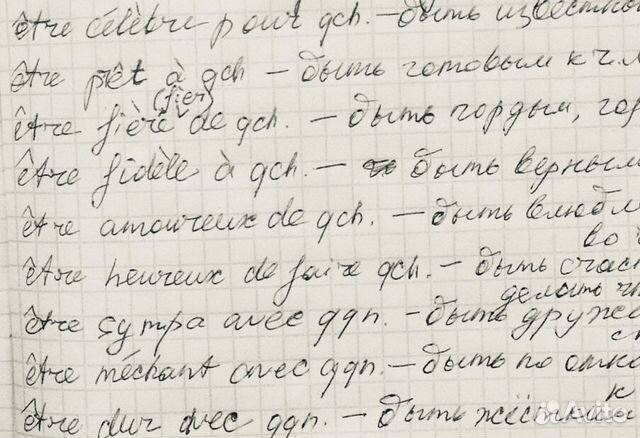 être célèbre pour qch. – быть известны
être prêt à qch – быть готовым к ч.л
(fier)
être fière de qch. – быть гордым, гор
être fidèle à qch. – быть верным
être amoureux de qch. – быть влюбл
во
être heureux de faire qch. – быть счас
делать
être sympa avec qqn. – быть друже
être méchant avec qqn. – быть по
к
être dur avec qqn. – быть жёстким
Avito